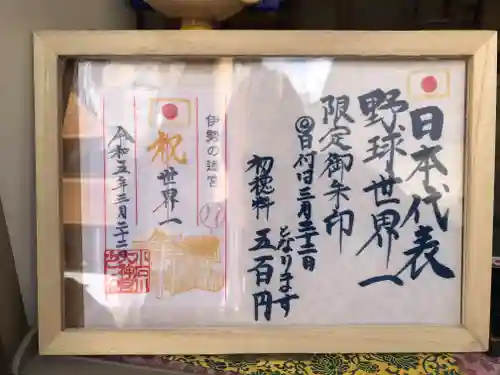 日本代表
野球世界一
限定御朱印
◎日付は三月二十二日
となります
初穂料 五百円
伊勢の遥宮
祝世界一
令和五年三月二十二